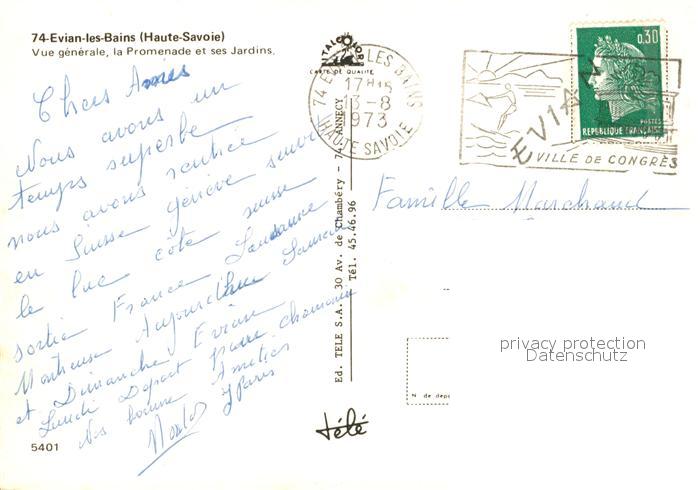 74-Evian-les-Bains (Haute-Savoie)
Vue générale, la Promenade et ses Jardins.
Chers Amies
Nous avons un
temps superbe
nous avons
en Suisse Génève suivre
le Lac côte suisse
sortie France Lausanne
Aujourd'hui Samedi
et Dimanche Evian
Lundi Départ pour Chamonix
Nos bonnes Amitiés
5401
ITALCOLOR
CARTE DE QUALITÉ
Ed. TELE S.A. 30 Av. de Chambéry - 74 ANNECY
Tél. 45.46.96
Télé
74 EVIAN LES BAINS
17H15
13-8
1973
HAUTE SAVOIE
EVIAN
VILLE DE CONGRÈS
0,30
POSTES
REPUBLIQUE FRANÇAISE
Famille Marchand
privacy protection
Datenschutz
N° de dépô